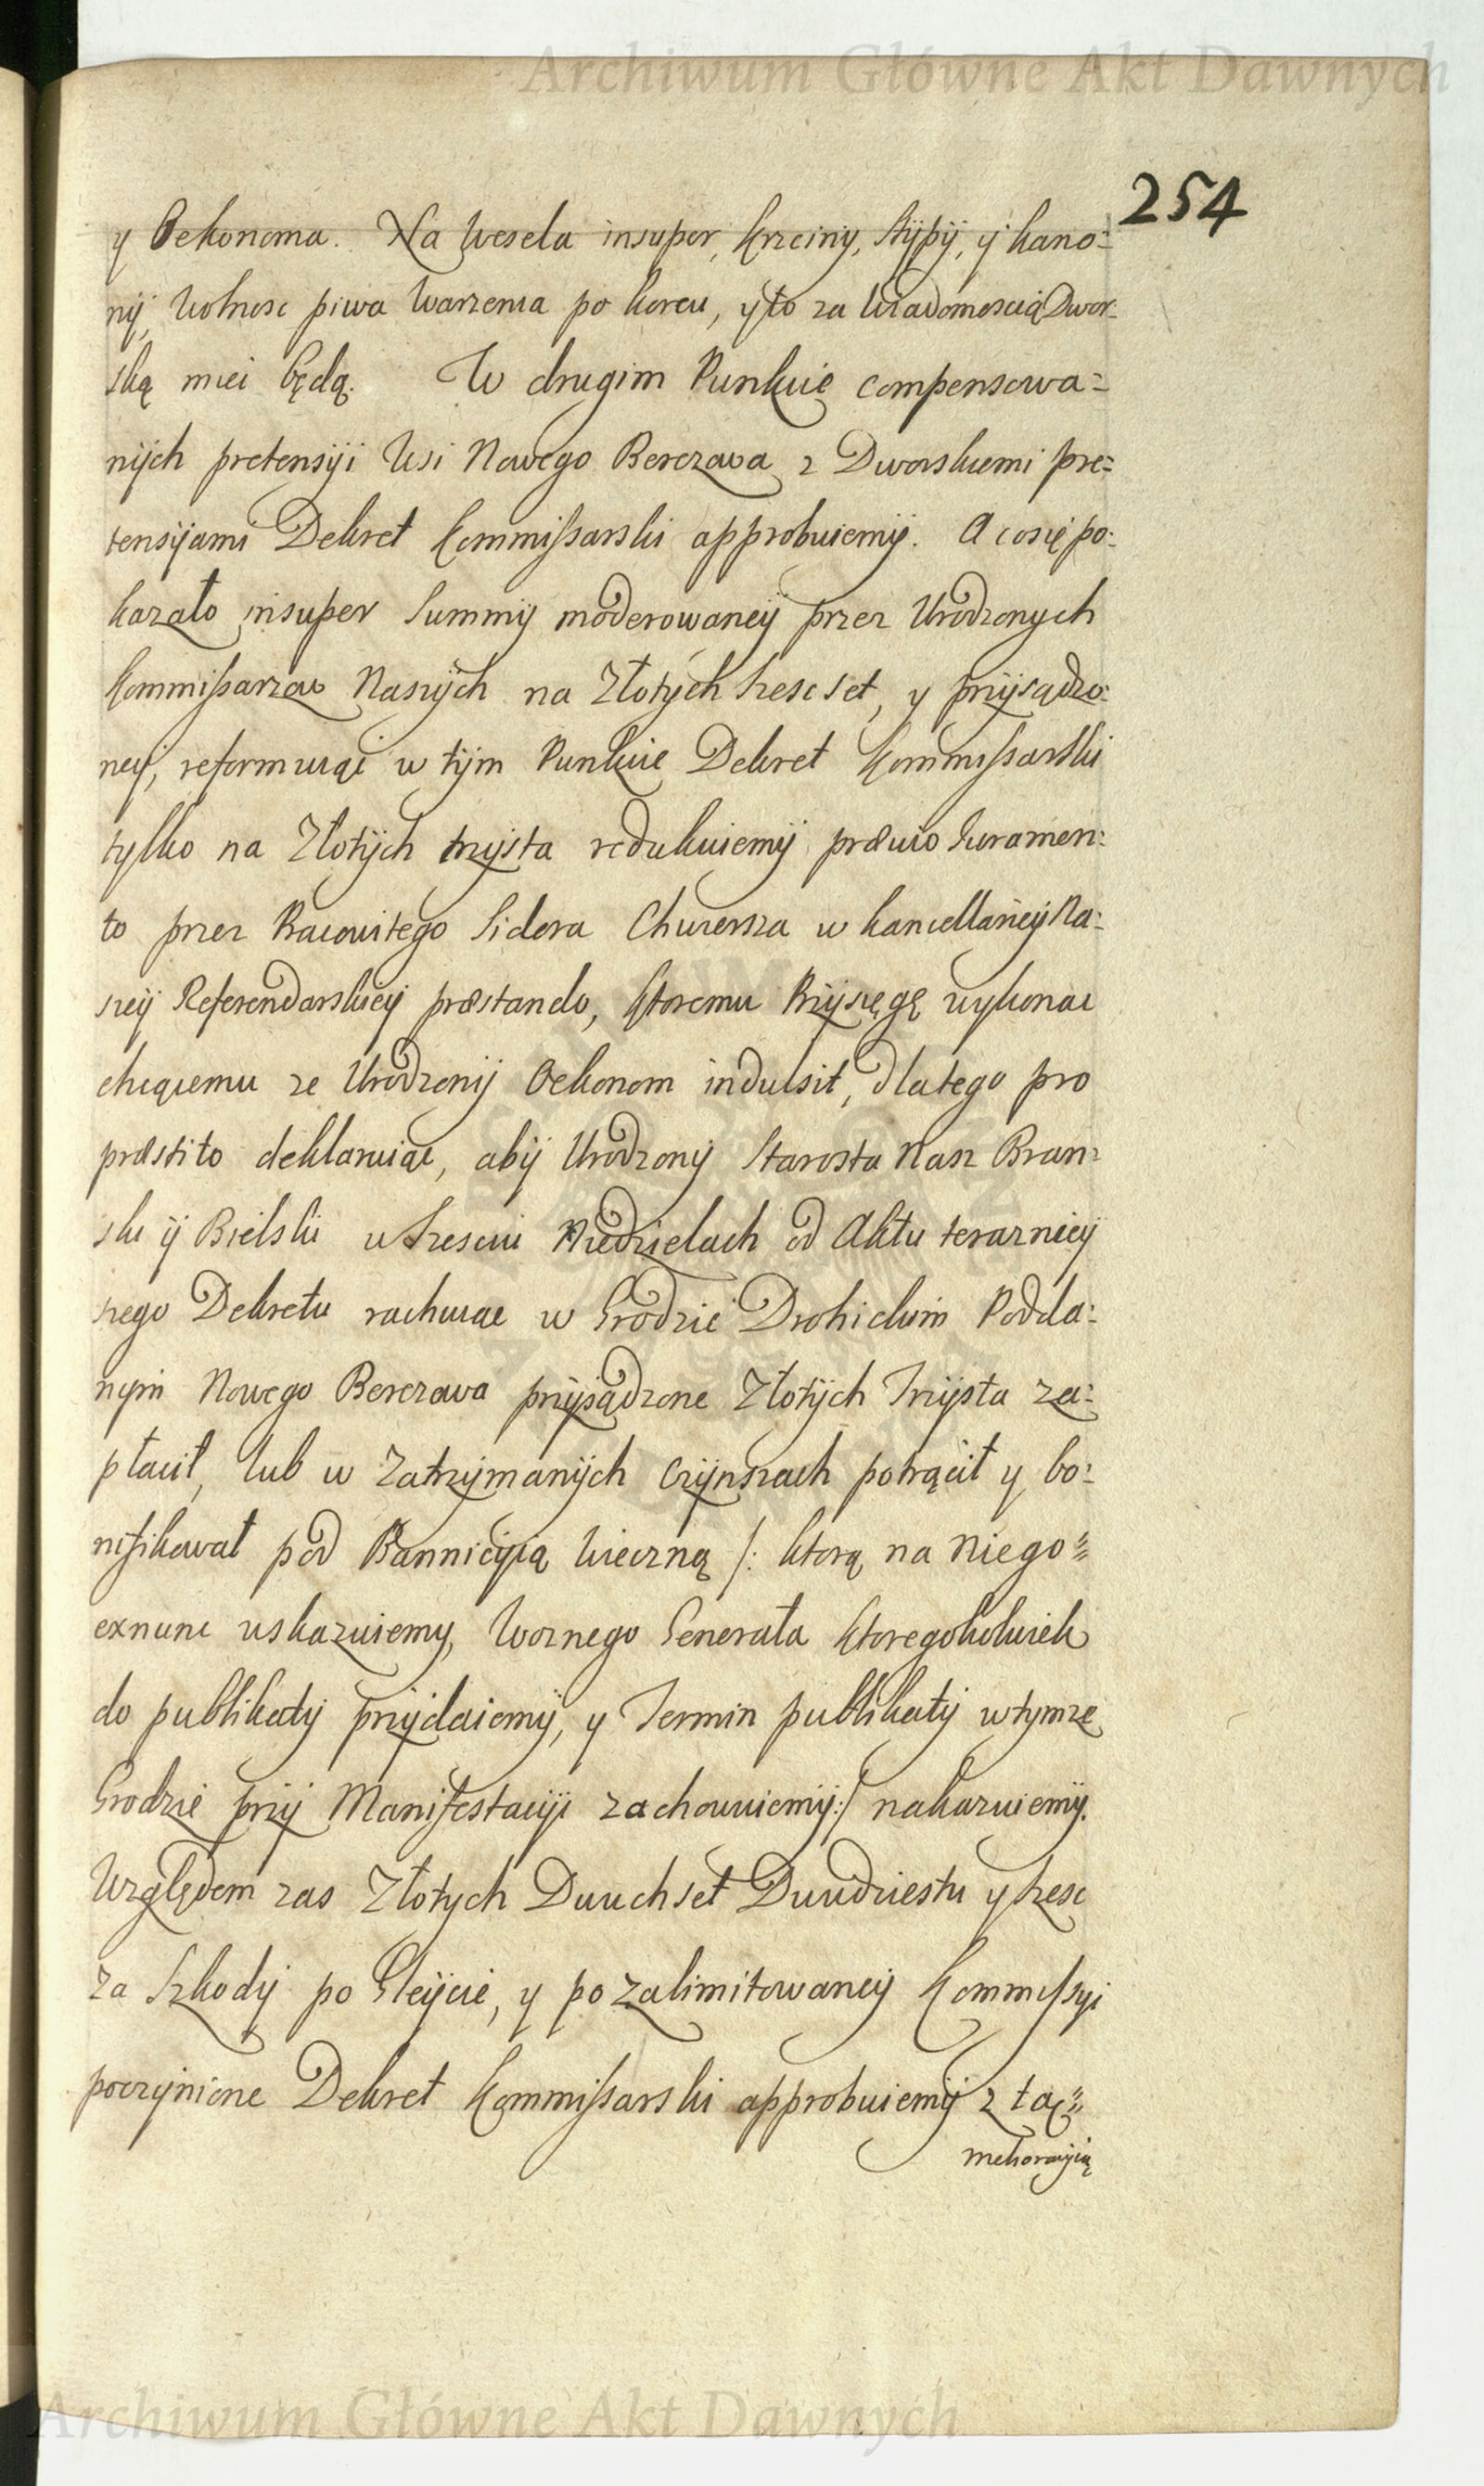 Archiwum Główne Akt Dawnych
254
y Oekonoma. Na Wesela insuper, krzciny, stypy, y kano=
ny, wolnosc piwa warzenia po korcu, y to za wiadomoscią Dwor=
ską miec będą. W drugim Punkcie compensowa=
nych pretensyi Wsi Nowego Berezowa z Dworskiemi pre=
tensyjami Dekret Kommissarski approbuiemy. A co się po=
kazało insuper summy moderowaney przez Urodzonych
Kommissarzow Naszych na Złotych szescset, y przysądzo=
ney, reformuiąc w tym Punkcie Dekret Kommissarski
tylko na Złotych trzysta redukuiemy prævio Juramen=
to przez Pracowitego Sidora Chwiersza w kancellaryey Na=
szey Referendarskiey præstando, ktoremu Przysięgę wykonac
chcącemu ze Urodzony Oekonom indulsit, dlatego pro
præstito deklaruiąc, aby Urodzony Starosta Nasz Bran=
ski y Bielski w szesciu Niedzielach od Aktu terazniey
szego Dekretu rachuiąc w Grodzie Drohickim Podda=
nym Nowego Berezowa przysądzone Złotych Trzysta za=
płacił, lub w zatrzymanych czynszach potrącił y bo=
nifikował pod Bannicyią wieczną /: ktorą na niego=
exnunc wskazuiemy, Woznego Generała ktoregokolwiek
do publikaty przydaiemy, y Termin publikaty w tymze
Grodzie przy Manifestacyi zachowuiemy :/ nakazuiemy.
Względem zas Złotych Dwuchset Dwudziestu y szesc
za Szkody po Gleycie, y po zalimitowaney Kommissyi
poczynione Dekret Kommissarski approbuiemy z tą=
mehoracyią
Archiwum Główne Akt Dawnych